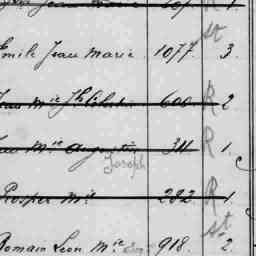 Jean Marie 607 R 1
st
Emile Jean Marie 1077. 3
Jean Mie Jh 600 R 2
Jean Mie Augustin 311 R 1.
Joseph
Prosper Mie 282 R 1.
st
Romain Leon Mie 918. 2.